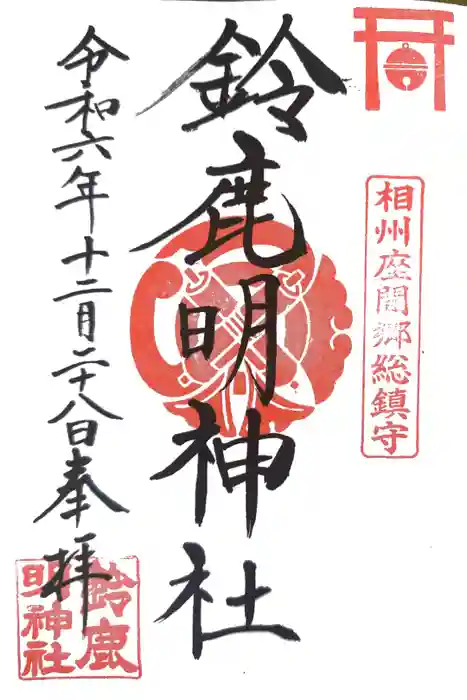 相州座間郷総鎮守
鈴鹿明神社
令和六年十二月二十八日奉拝
鈴鹿
明神社